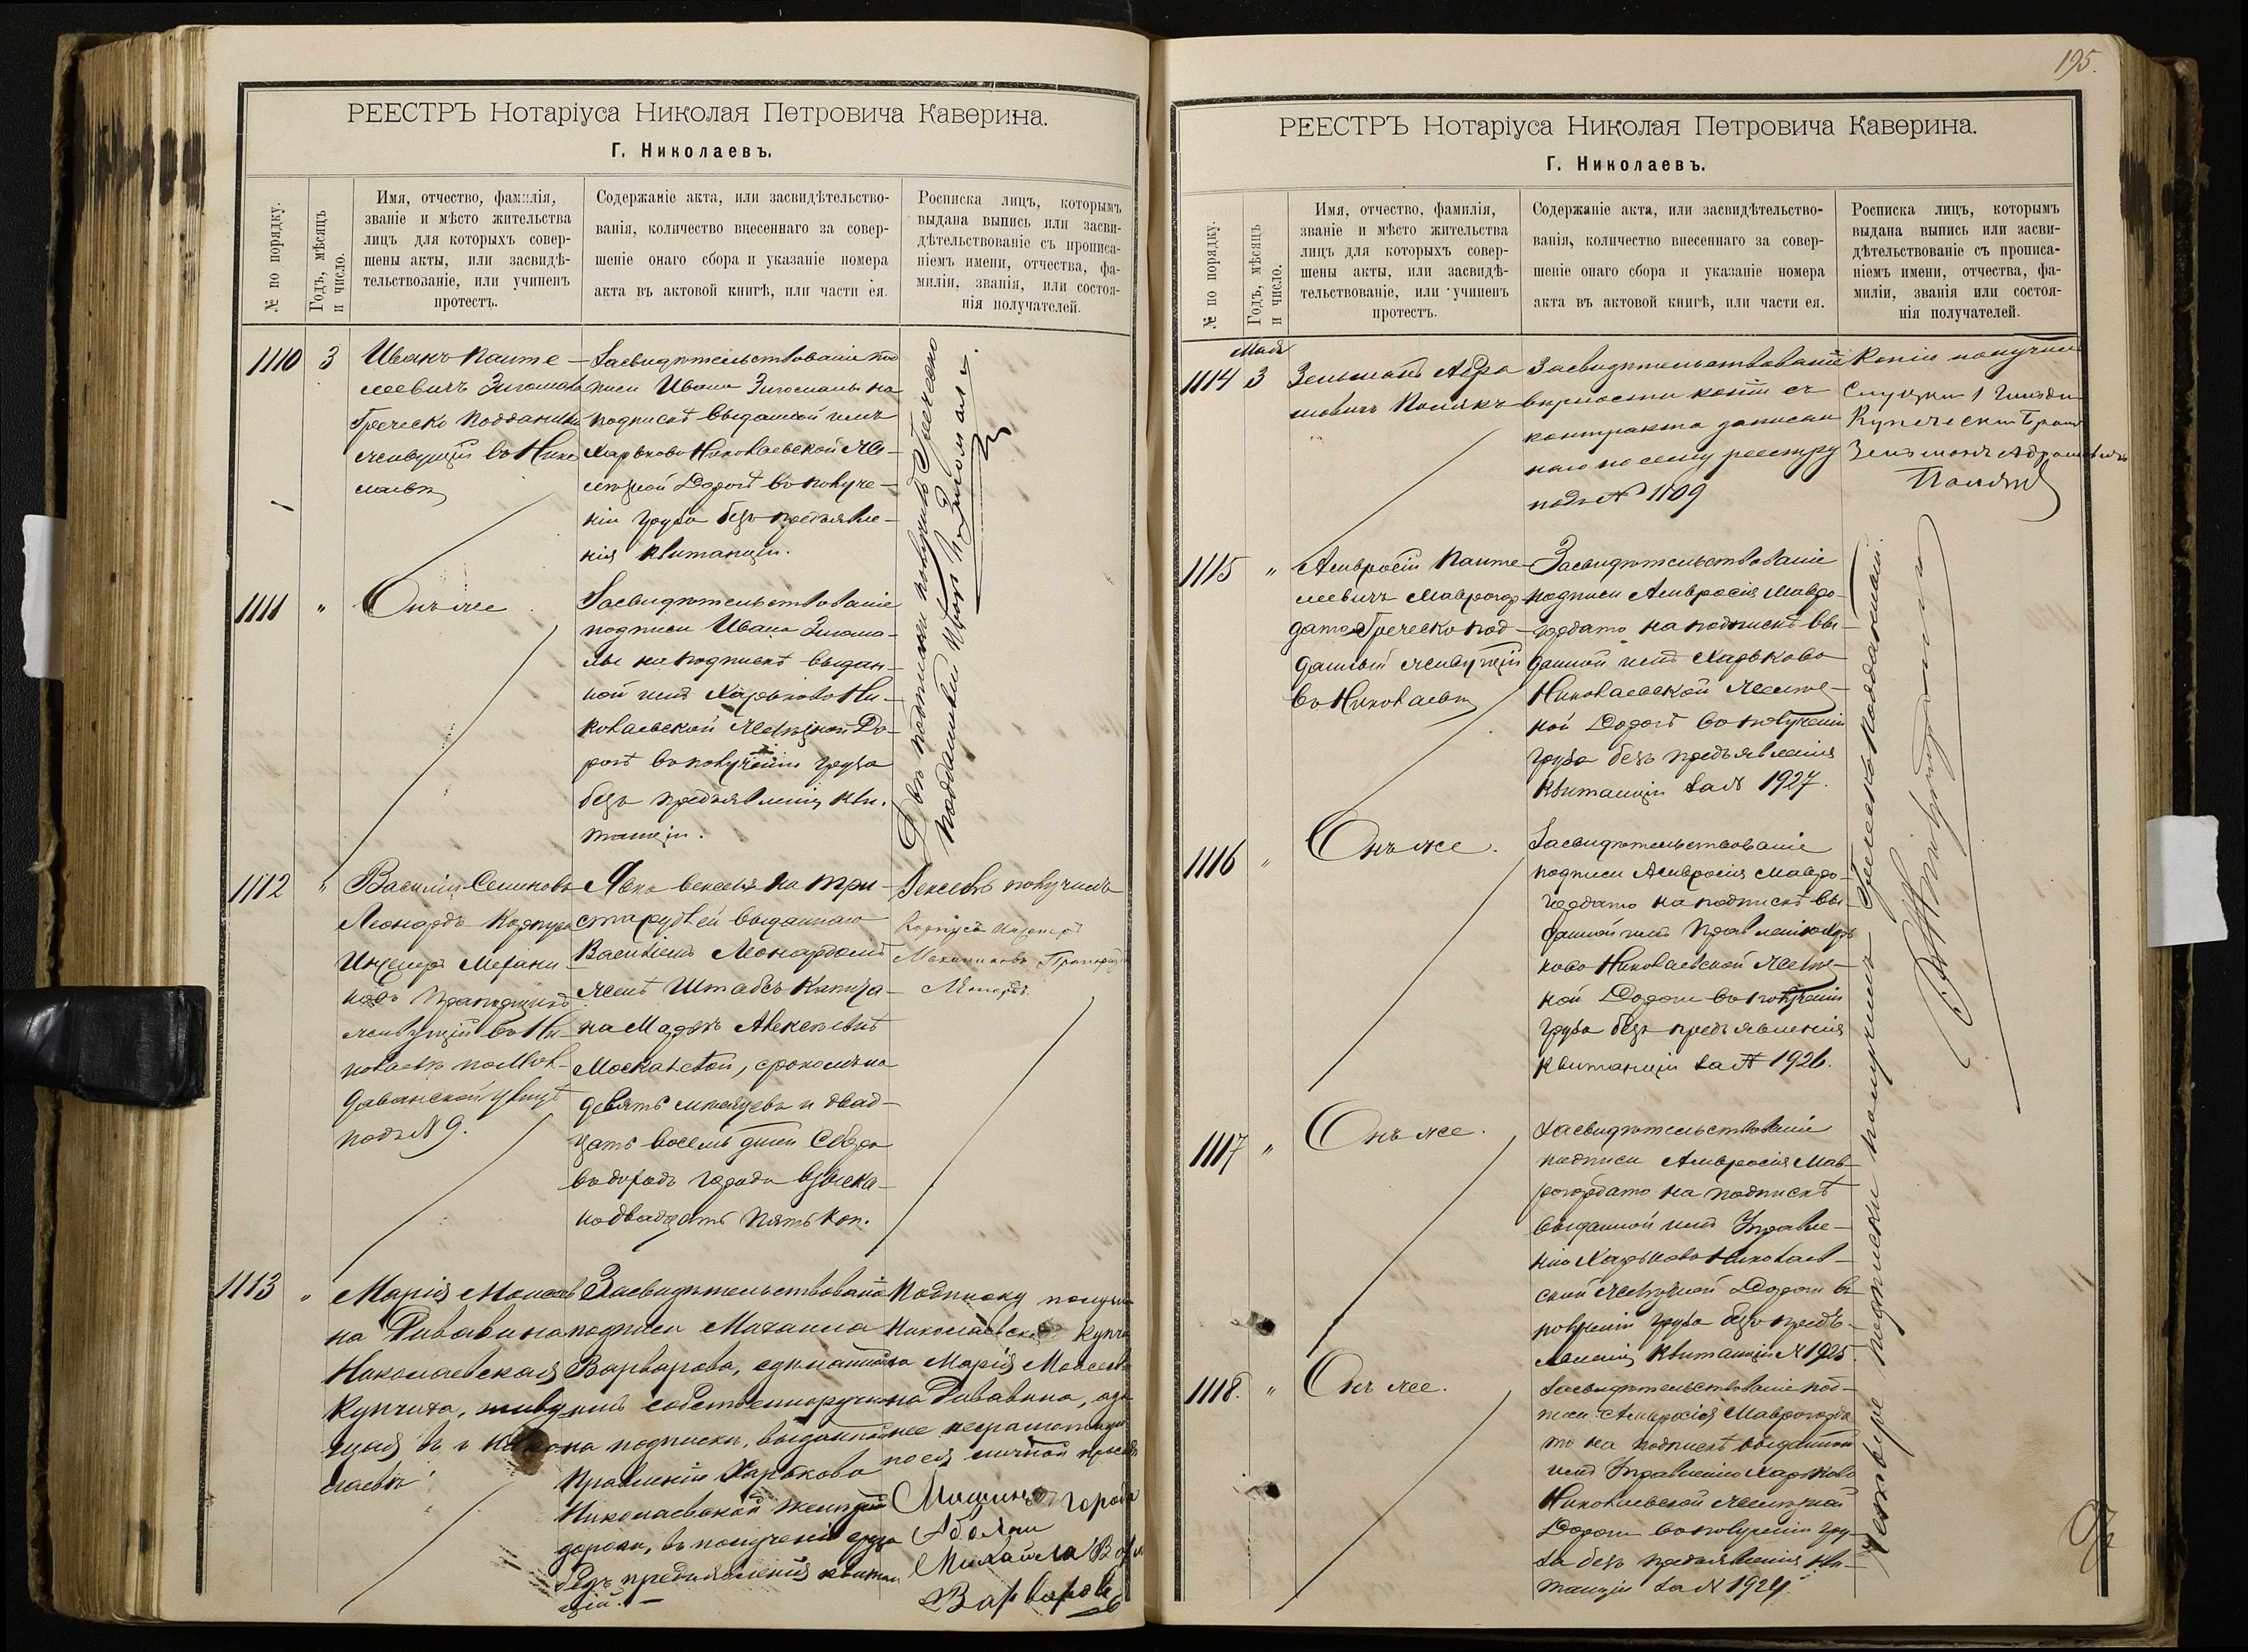 РЕЕСТРЪ Нотаріуса Николая Петровича Каверина.
Г. Николаевъ.
№ по порядку.
Годъ, мѣсяцъ
и число.
Имя, отчество, фамилія,
званіе и мѣсто жительства
лицъ для которыхъ совер-
шены акты, или засвидѣ-
тельствованіе, или учиненъ
протестъ.
Содержаніе акта, или засвидѣтельство-
ванія, количество внесеннаго за совер-
шеніе онаго сбора и указаніе номера
акта въ актовой книгѣ, или части ея.
Росписка лицъ, которымъ
выдана выпись или засви-
дѣтельствованіе съ прописа-
ніемъ имени, отчества, фа-
миліи, званія, или состоя-
нія получателей.
1110
3
Иванъ Панте-
леевичъ Зигомала
Греческо подданный
живущій въ Нико
лаевѣ
Засвидѣтельствованіе под
писи Ивана Зигомалы на
подпискѣ выданной имъ
Харьково Николаевской Же-
лѣзной Дорогѣ въ получе-
ніи груза безъ предъявле-
нія квитанціи.
Двѣ подписки получилъ Греческо
подданный
1111
"
Онъ же
Засвидѣтельствованіе
подписи Ивана Зигома-
лы на подпискѣ выдан-
ной имъ Харьково Ни-
колаевской Желѣзной До-
рогѣ въ полученіи груза
безъ предъявленія кви-
танціи.
1112
"
Василій Семеновъ
Леонардъ Корпуса
Инженеръ Механи-
ковъ Прапорщикъ
живущій въ Ни-
колаевѣ по Мол-
даванской улицѣ
подъ № 9.
Явка векселя на три-
ста рублей выданнаго
Василіемъ Леонардомъ
женѣ Штабсъ Капита-
на Марьѣ Алексѣевнѣ
Москалевой, срокомъ на
девять мѣсяцевъ и двад-
цать восемь дней Сбора
въ доходъ города взыска-
но двадцать пять коп.
Вексель получилъ
Корпуса Инженеръ
Механиковъ Прапорщикъ
1113
"
Марія Моисеев
на Ривавина
Николаевская
Купчиха, живу
щая въ г Нико
лаевѣ
Засвидѣтельствованіе
подписи Михаила
Варварова, сдѣланной
имъ собственноручно
на подпискѣ, выданной
Правленію Харьково
Николаевской желѣзной
дороги, въ полученіи груза
безъ предъявленія квитан
ціи. —
Подписку получила
Николаевская купчи
ха Марія Моисеев
на Ривавина, а за
нее неграмотную
по ея личной просьбѣ
города
Михайла
Варваровъ
195.
РЕЕСТРЪ Нотаріуса Николая Петровича Каверина.
Г. Николаевъ.
№ по порядку.
Годъ, мѣсяцъ
и число.
Имя, отчество, фамилія,
званіе и мѣсто жительства
лицъ для которыхъ совер-
шены акты, или засвидѣ-
тельствованіе, или учиненъ
протестъ.
Содержаніе акта, или засвидѣтельство-
ванія, количество внесеннаго за совер-
шеніе онаго сбора и указаніе номера
акта въ актовой книгѣ, или части ея.
Росписка лицъ, которымъ
выдана выпись или засви-
дѣтельствованіе съ прописа-
ніемъ имени, отчества, фа-
миліи, званія или состоя-
нія получателей.
Мая
1114
3
Зельманъ Абра
мовичъ Полякъ
Засвидѣтельствованіе
вѣрности копіи съ
контракта записан
наго по сему реестру
подъ № 1109
Копію получилъ
1 Гильдіи
Купеческій
Зельманъ Абрамовичъ
Полякъ
1115
"
Амвросій Панте-
леевичъ Маврогор
дато Греческо под-
данный живущій
въ Николаевѣ
Засвидѣтельствованіе
подписи Амвросія Мавро-
гордато на подпискѣ вы-
данной имъ Харьково
Николаевской Желѣз-
ной Дорогѣ въ полученіи
груза безъ предъявленія
квитанціи за № 1927.
1116
"
Онъ же.
Засвидѣтельствованіе
подписи Амвросія Мавро-
гордато на подпискѣ вы-
данной имъ Правленію Харь
ково Николаевской Желѣз-
ной Дороги въ полученіи
груза безъ предъявленія
квитанціи за № 1926.
1117
"
Онъ же.
Засвидѣтельствованіе
подписи Амвросія Мав-
рогордато на подпискѣ
выданной имъ Управле-
нію Харьково Николаев-
ской Желѣзной Дороги въ
полученіи груза безъ предъ-
явленія квитанціи № 1925.
1118.
"
Онъ же.
Засвидѣтельствованіе под-
писи Амвросія Маврогорда
то на подпискѣ выданной
имъ Управленію Харьково
Николаевской Желѣзной
Дороги въ полученіи гру-
за безъ предъявленія кви-
танціи за № 1924.
Четыре подписки получилъ Греческоподданный